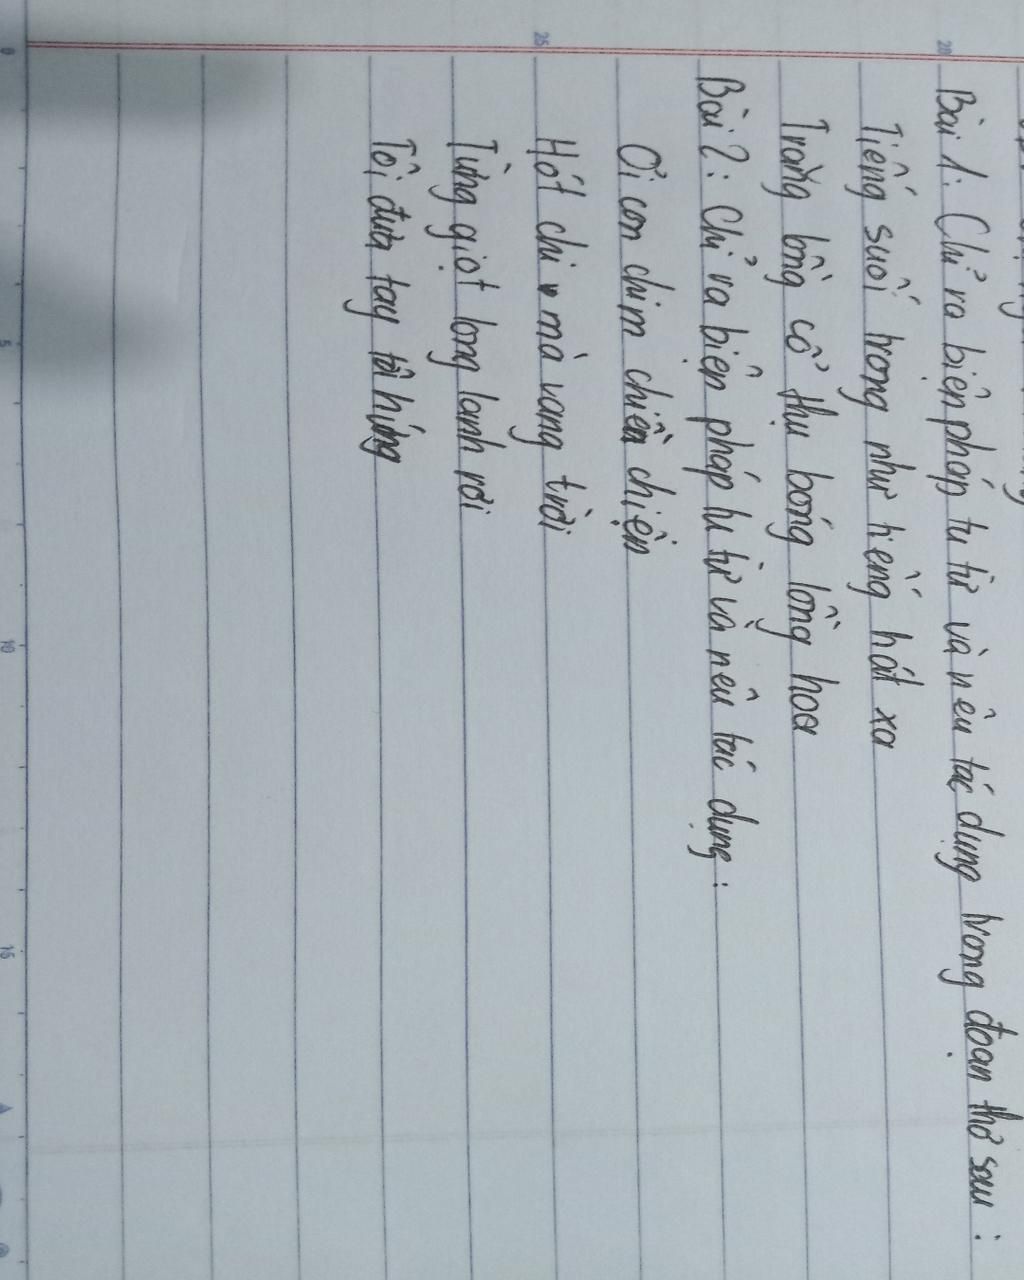 Bài 1: Chỉ ra biện pháp tu từ và nêu tác dụng trong đoạn thơ sau:
Tiếng suối trong như tiếng hát xa
Trăng lồng cổ thụ bóng lồng hoa
Bài 2: Chỉ ra biện pháp tu từ và nêu tác dụng:
Ơi con chim chiền chiện
Hót chi mà vang trời
Từng giọt long lanh rơi
Tôi đưa tay tôi hứng
20
25
0
5
10
15